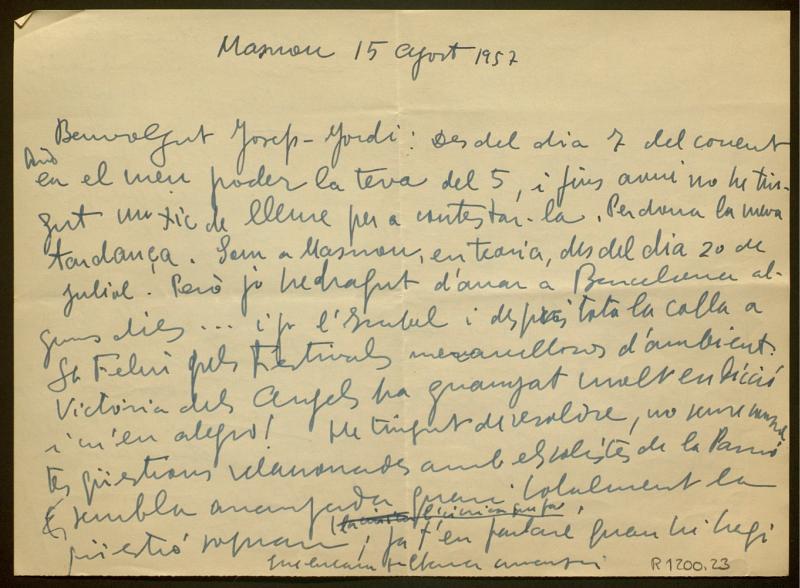 Masnou 15 agost 1957
Benvolgut Josep-Jordi: Des del dia 7 del corrent
Duc
en el meu poder la teva del 5, i fins avui no he tin-
gut un xic de lleure per a contestar-la. Perdona la meva
tardança. Som a Masnou, en teoria, des del dia 20 de
juliol. Però jo he hagut d'anar a Barcelona al-
guns dies... i jo i l'Isabel i després tota la colla a
St Feliu pels Festivals meravellosos d'ambient.
Victòria dels Angels ha guanyat molt en dicció
i m'en alegro! He tingut de resoldre, no sense
tes qüestions relacionades amb els solistes de la Passió
Es sembla arranjada quasi totalment la
qüestió soprano, ja t'en parlaré quan hi hagi
R 1200.23